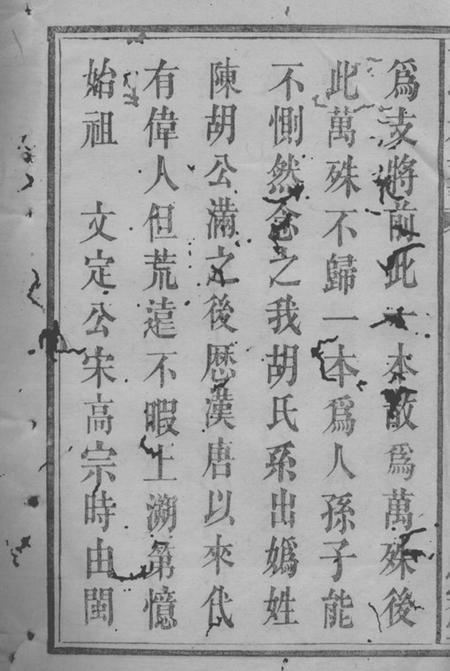 爲支將前此一本散爲萬殊後
此萬殊不歸一本爲人孫子能
不惻然念之我胡氏系出嬀姓
陳胡公滿之後歷漢唐以來代
有偉人但荒遠不暇上溯第憶
始祖 文定公宋高宗時由閩